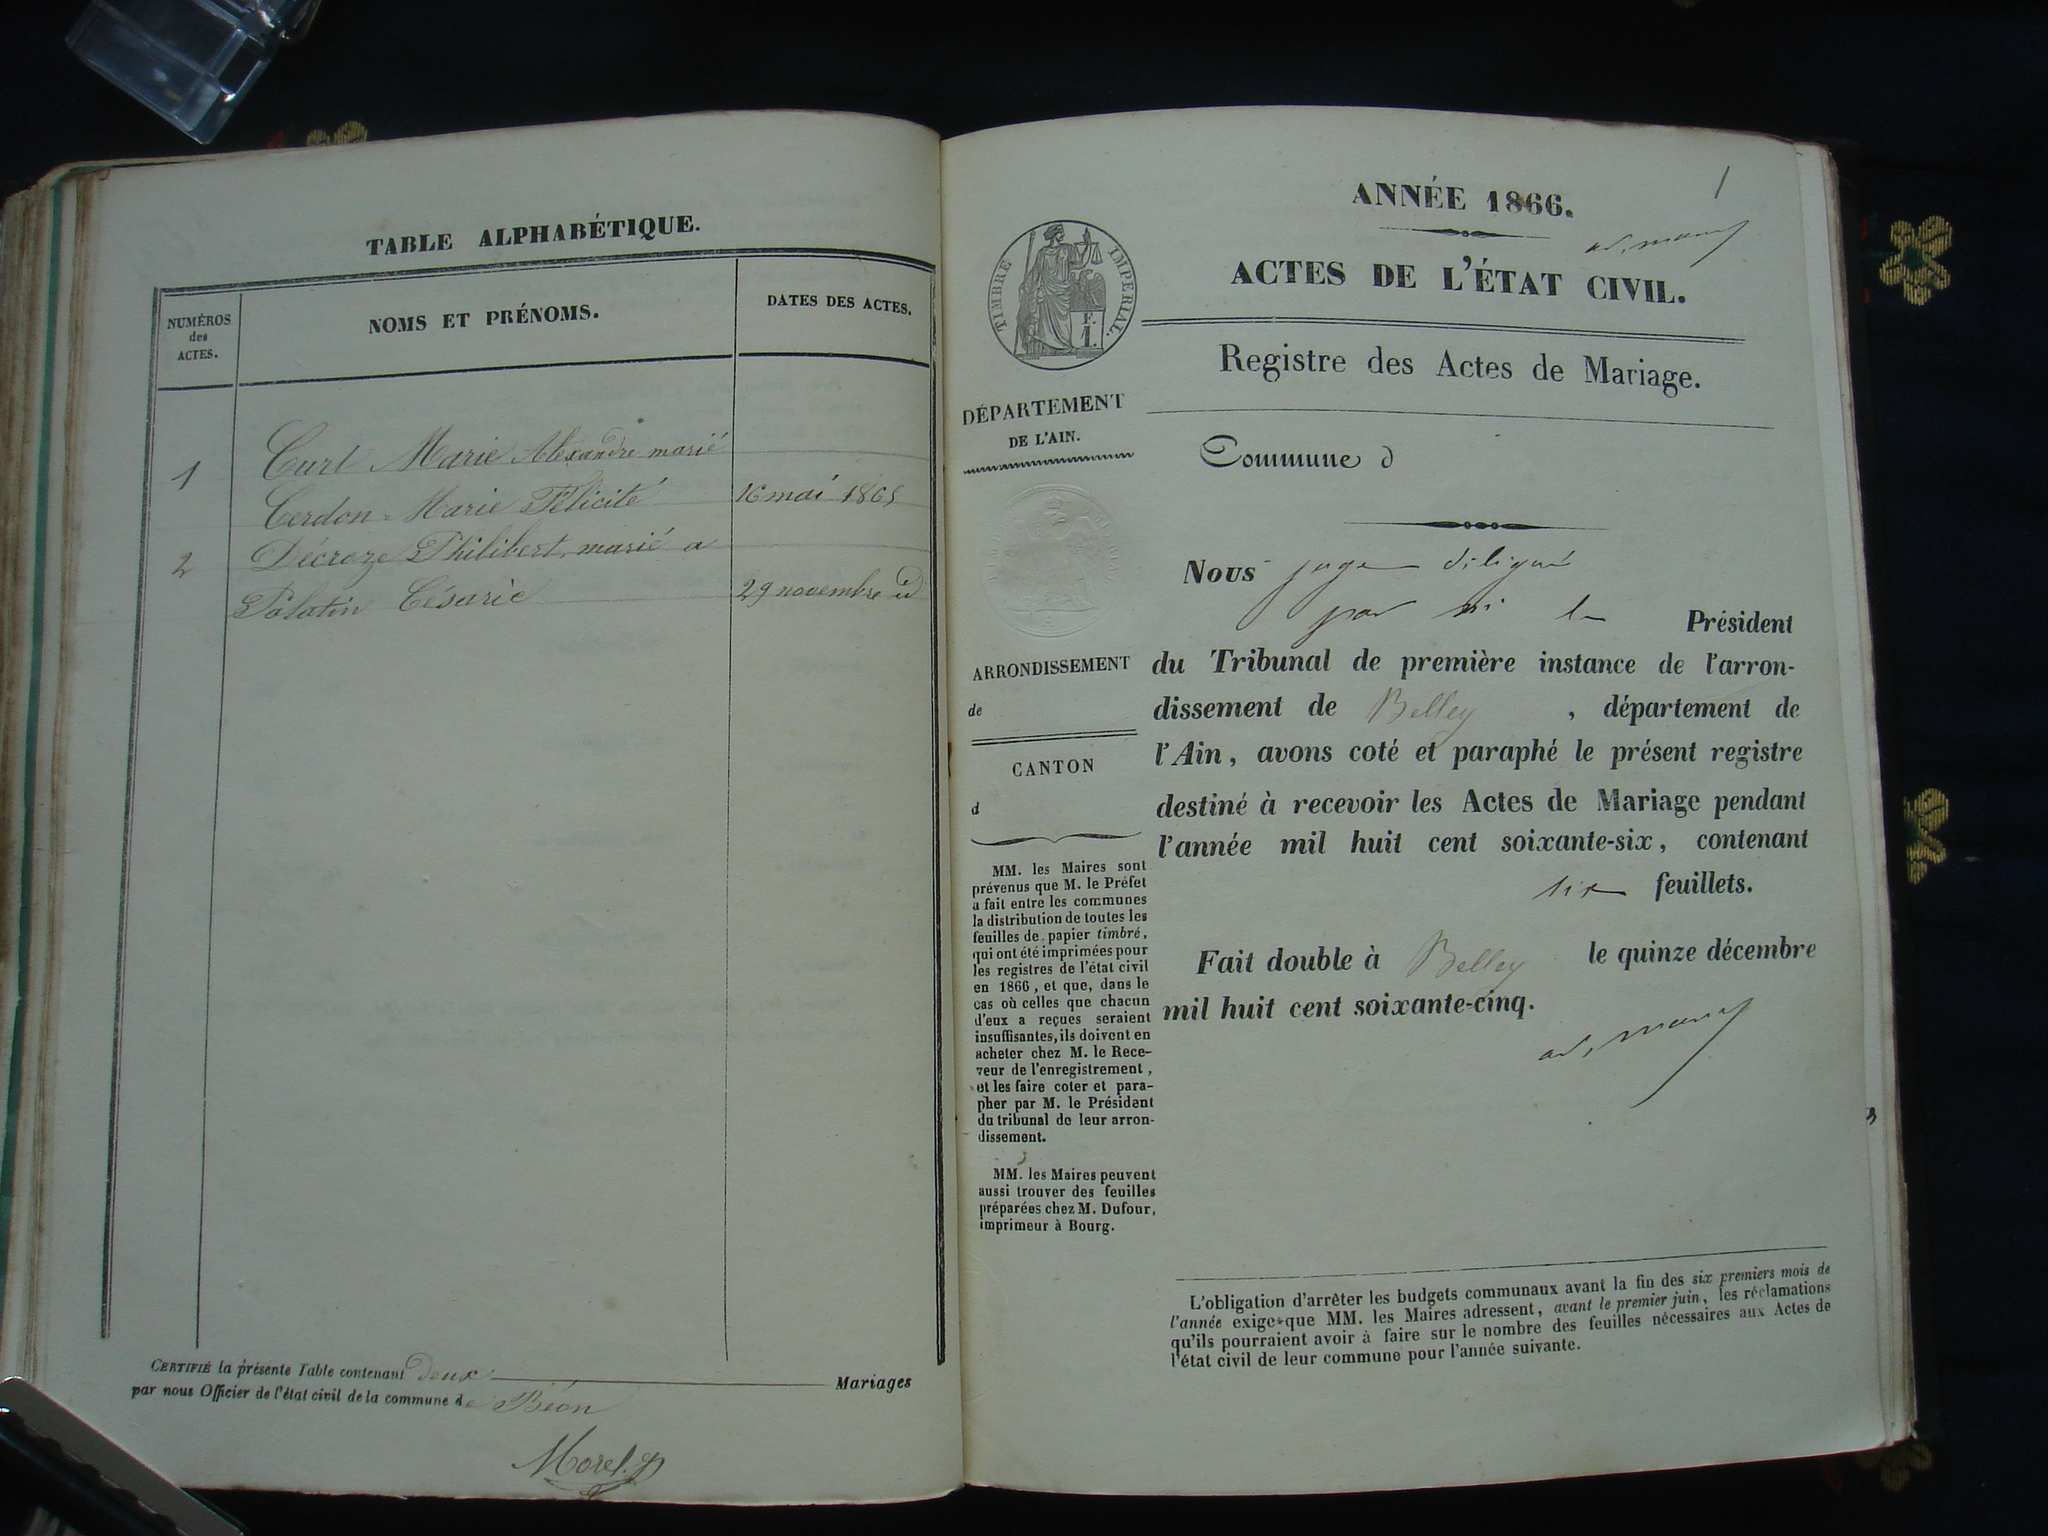 TABLE ALPHABÉTIQUE.
NUMÉROS
des
ACTES.
NOMS ET PRÉNOMS.
DATES DES ACTES.
1
Curt Marie Alexandre marié
Cerdon Marie Félicité 16 mai 1865
2
Décroze Philibert, marié a
Polatin Césarie 29 novembre id
CERTIFIÉ la présente Table contenant deux Mariages
par nous Officier de l'état civil de la commune de Béon
Morel
1
ANNÉE 1866.
ACTES DE L'ÉTAT CIVIL.
TIMBRE IMPÉRIAL.
F.
1.
Registre des Actes de Mariage.
DÉPARTEMENT
DE L'AIN.
Commune d
Nous juge délégué
par M. le Président
du Tribunal de première instance de l'arron-
dissement de Belley , département de
l'Ain, avons coté et paraphé le présent registre
destiné à recevoir les Actes de Mariage pendant
l'année mil huit cent soixante-six, contenant
six feuillets.
Fait double à Belley le quinze décembre
mil huit cent soixante-cinq.
ARRONDISSEMENT
de
CANTON
d
MM. les Maires sont
prévenus que M. le Préfet
a fait entre les communes
la distribution de toutes les
feuilles de papier timbré,
qui ont été imprimées pour
les registres de l'état civil
en 1866, et que, dans le
cas où celles que chacun
d'eux a reçues seraient
insuffisantes, ils doivent en
acheter chez M. le Rece-
veur de l'enregistrement,
et les faire coter et para-
pher par M. le Président
du tribunal de leur arron-
dissement.
MM. les Maires peuvent
aussi trouver des feuilles
préparées chez M. Dufour,
imprimeur à Bourg.
L'obligation d'arrêter les budgets communaux avant la fin des six premiers mois de
l'année exige que MM. les Maires adressent, avant le premier juin, les réclamations
qu'ils pourraient avoir à faire sur le nombre des feuilles nécessaires aux Actes de
l'état civil de leur commune pour l'année suivante.